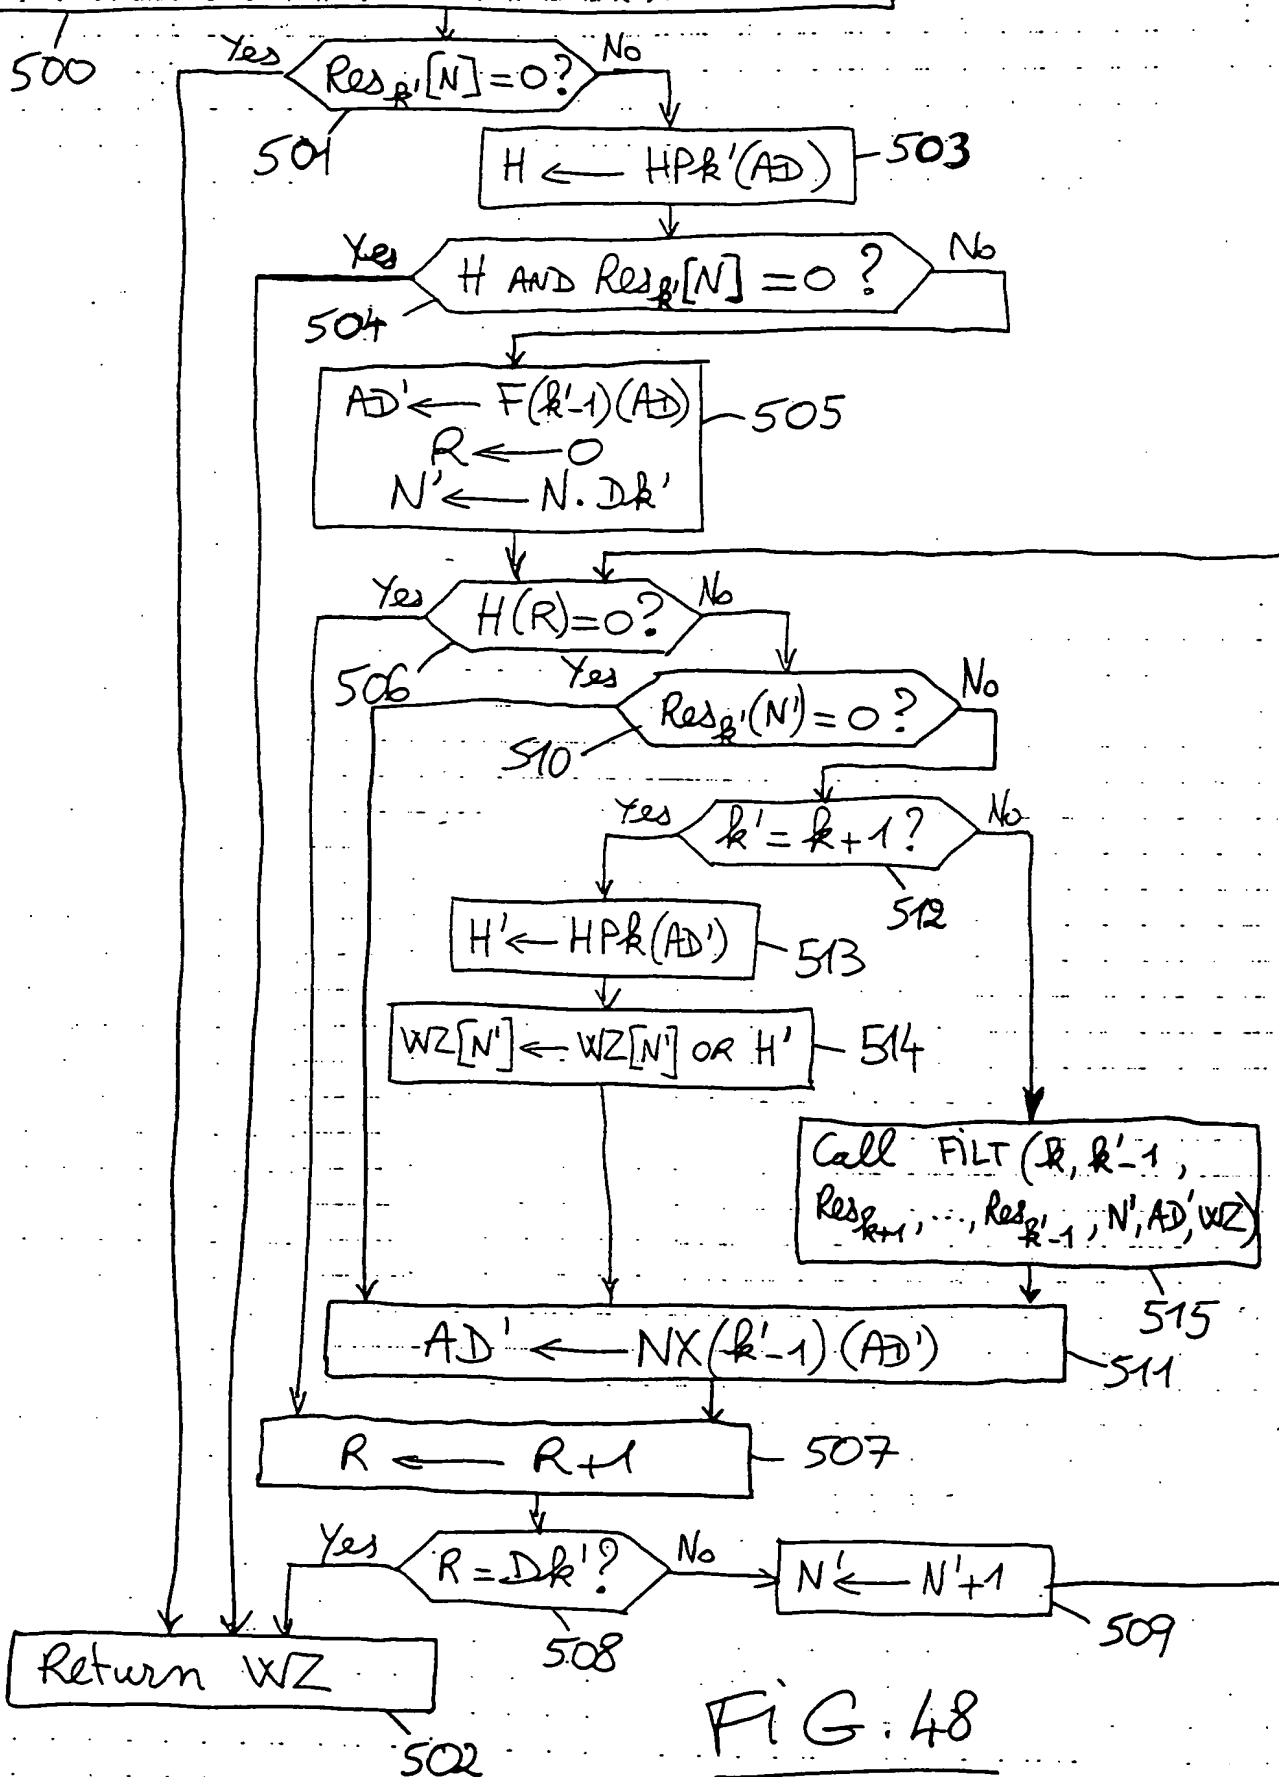 500
Yes
No
Res_k'[N] = 0?
501
H ← HPk'(AD)
503
Yes
No
H AND Res_k'[N] = 0 ?
504
AD' ← F(k'-1)(AD)
R ← 0
N' ← N. Dk'
505
Yes
No
H(R)=0?
506
Yes
No
Res_k'(N') = 0 ?
510
Yes
No
k' = k+1?
512
H' ← HPk(AD')
513
WZ[N'] ← WZ[N'] OR H'
514
Call FILT (k, k'-1,
Res_k+1, ..., Res_k'-1, N', AD', WZ)
515
AD' ← NX(k'-1)(AD')
511
R ← R+1
507
Yes
No
R = Dk'?
508
N' ← N'+1
509
Return WZ
502
FiG. 48